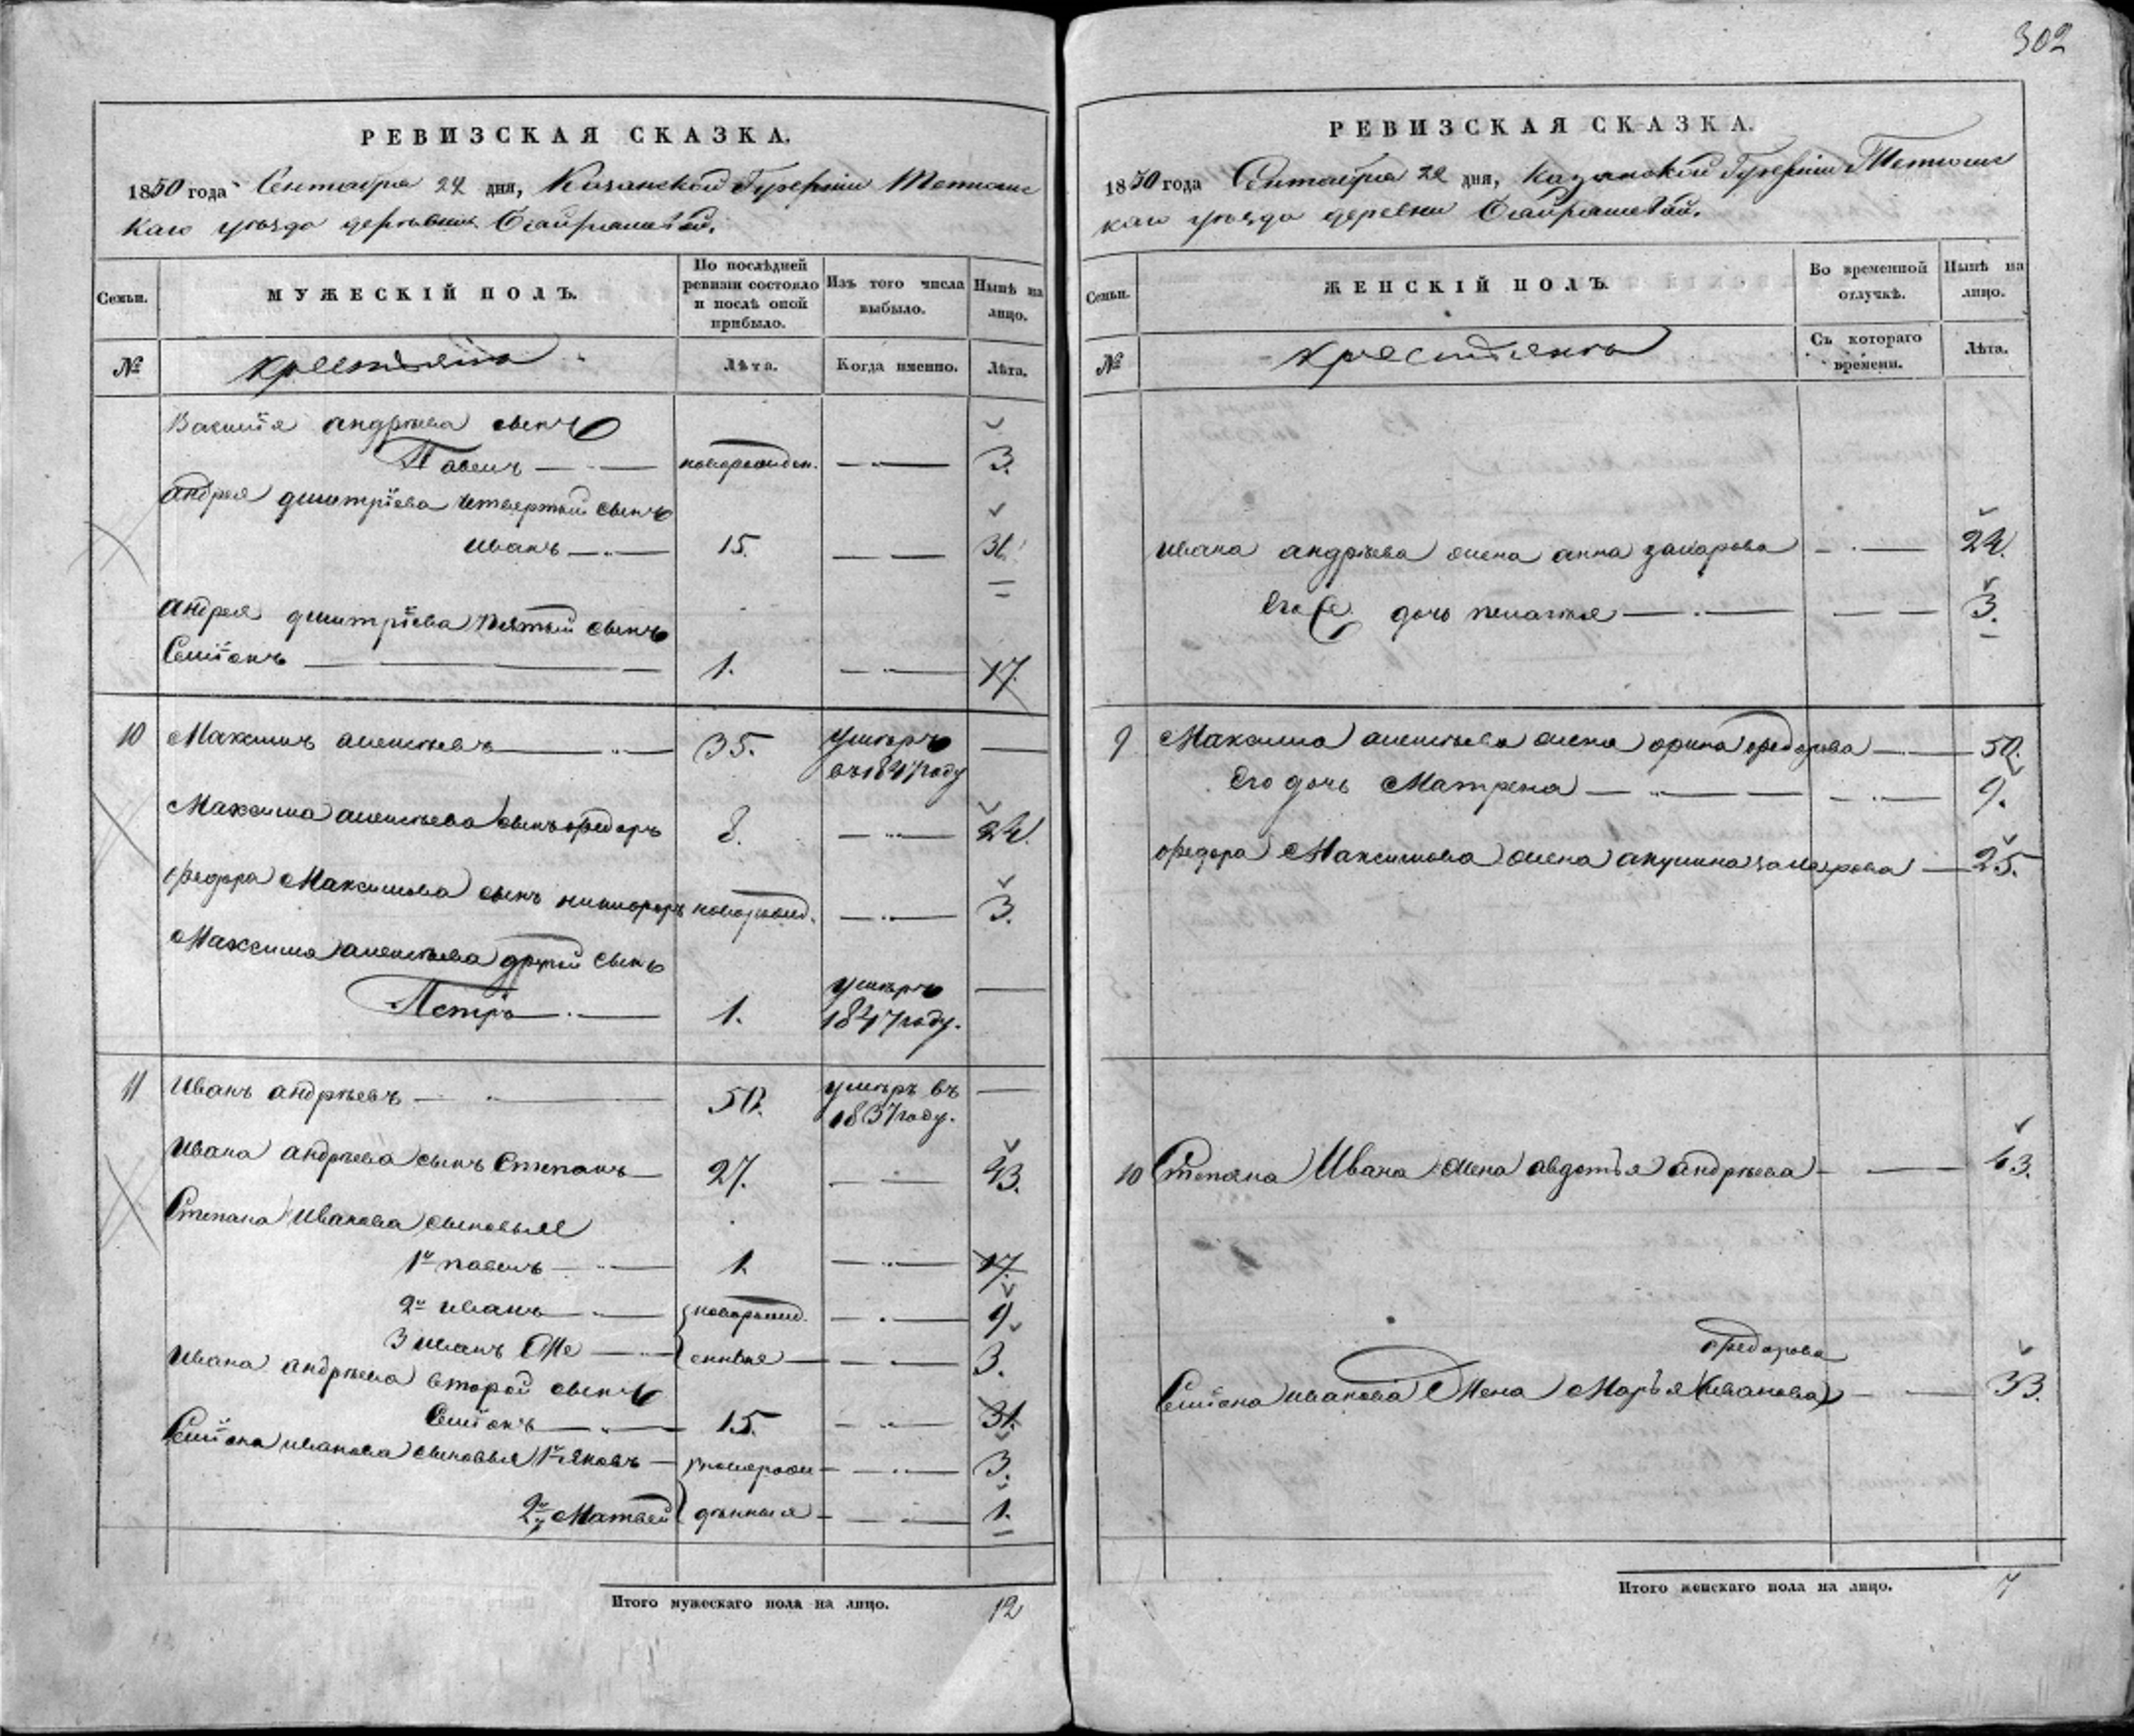 302
РЕВИЗСКАЯ СКАЗКА.
1850 года Сентября 22 дня, Казанской Губерніи Тетюшс
каго уѣзда деревни
Семьи.
МУЖЕСКІЙ ПОЛЪ.
По послѣдней ревизіи состояло и послѣ оной прибыло.
Изъ того числа выбыло.
Нынѣ на лицо.
№
крестьяне
Лѣта.
Когда именно.
Лѣта.
Василія андрѣева сынъ
Павелъ — новорожден. — 3.
андрея дмитріева четвертый сынъ
иванъ — 15. — 31.
андрея дмитріева пятый сынъ
Семіонъ — 1. — 17.
10 Максимъ алексѣевъ — 35. умѣръ —
въ 1847 году
Максима алексѣева сынъ ѳедоръ 8. — 24.
ѳедора Максимова сынъ никифоръ новорожд. — 3.
Максима алексѣева другой сынъ
умѣръ —
Петръ — 1. 1847 году.
11 Иванъ андрѣевъ — 50. умѣръ въ —
1837 году.
Ивана андрѣева сынъ Степанъ — 27. — 43.
Степана иванова сыновья
1й павелъ — 1. — 17.
2й иванъ — новорожд. — 9.
3 иванъ же — енныя — 3.
Ивана андрѣева второй сынъ
Семіонъ — 15. — 31.
Семіона иванова сыновья 1й яковъ — новорож — 3.
2й Матвей денныя — 1.
Итого мужескаго пола на лицо. 12
РЕВИЗСКАЯ СКАЗКА.
1850 года Сентября 22 дня, Казанской Губерніи Тетюшс
каго уѣзда деревни
Семьи.
ЖЕНСКІЙ ПОЛЪ.
Во временной отлучкѣ.
Нынѣ на лицо.
№
крестьяне
Съ котораго времени.
Лѣта.
ивана андрѣева жена анна захарова — 24.
его дочь пелагея — 3.
9 Максима алексѣева жена орина ѳедорова — 50.
Его дочь Матрена — 9.
ѳедора Максимова жена акулина захарова — 25.
10 Степана Ивана жена авдотья андрѣева — 43.
ѳедорова
Семіона иванова жена Марья (иванова) — 33.
Итого женскаго пола на лицо. 7